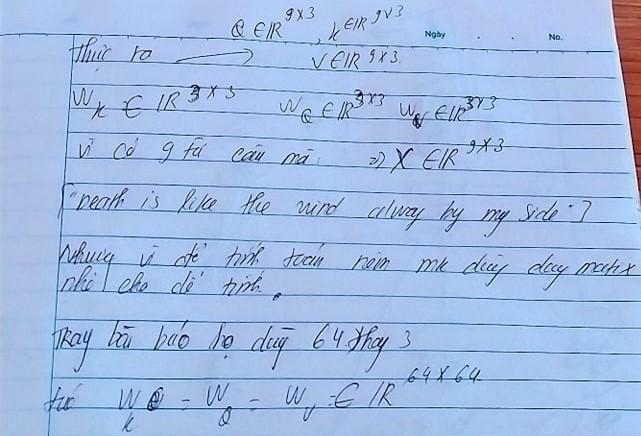 Q ∈ IR^9×3, K ∈ IR^9×3
Ngày . . No.
Thực ra ⟶ V ∈ IR^9×3
W_K ∈ IR^3×3 W_Q ∈ IR^3×3 W_V ∈ IR^3×3
vì có 9 từ câu mà => X ∈ IR^9×3
["Death is like the wind alway by my side"]
Nhưng vì để tính toán nên mk dùng matrix
nhỏ cho dễ tính.
bài báo họ dùng 64 thay 3
W_K = W_Q = W_V = ∈ IR^64×64